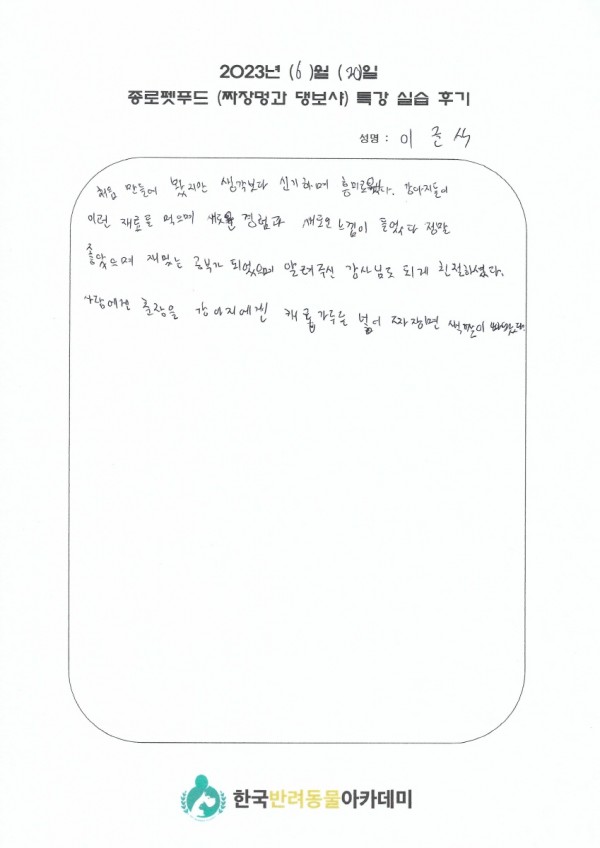 2023년 (6)월 (20)일
종로펫푸드 (짜장멍과 댕보샤) 특강 실습 후기
성명 : 이준식
처음 만들어 봤지만 생각보다 신기하며 흥미로웠다. 강아지들이
이런 재료를 먹으며 새로운 경험과 새로운 느낌이 들었다 정말
좋았으며 재밌는 공부가 되었으며 알려주신 강사님도 되게 친절하셨다.
사람에겐 춘장을 강아지에겐 캐롭가루를 넣어 짜장면 색깔이
한국반려동물아카데미